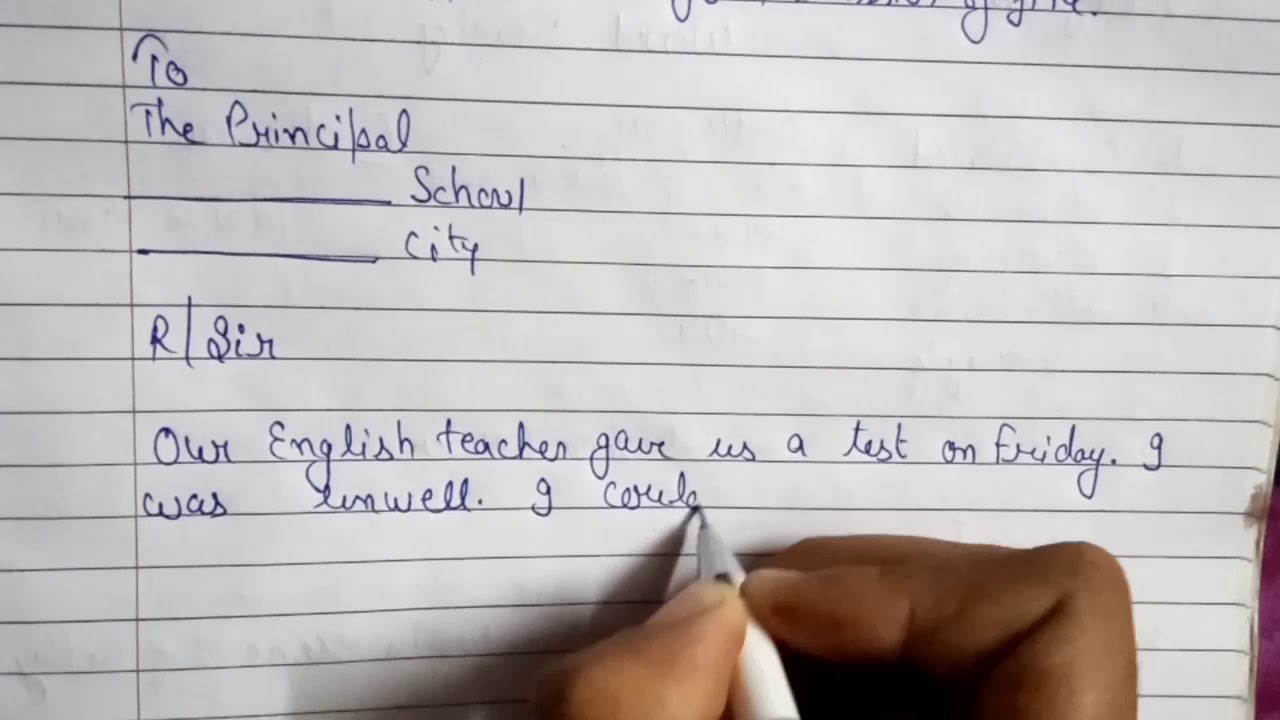 of fine.
To
The Principal
School
City
R/Sir
Our English teacher gave us a test on Friday. I
was unwell. I could